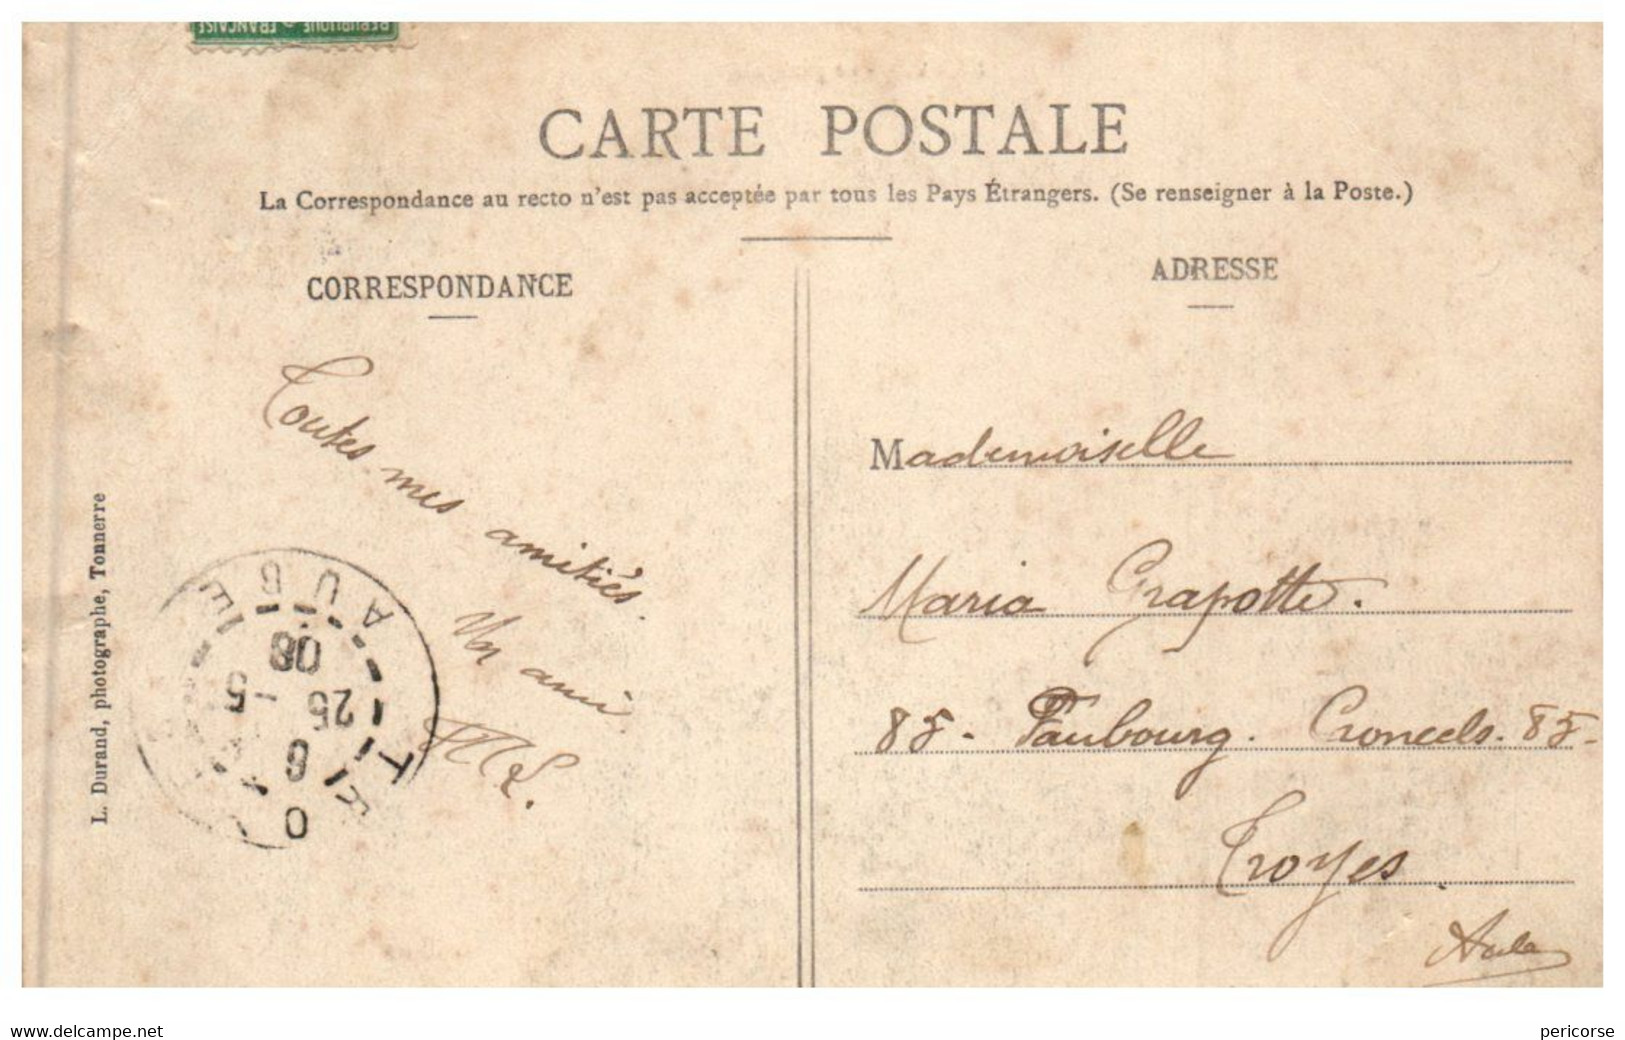 RÉPUBLIQUE FRANÇAISE
CARTE POSTALE
La Correspondance au recto n'est pas acceptée par tous les Pays Étrangers. (Se renseigner à la Poste.)
CORRESPONDANCE
Toutes mes amitiés.
Un ami
L. Durand, photographe, Tonnerre
AUBE
08
25 -5
6
ADRESSE
Mademoiselle
Maria Grapotte.
85- Faubourg. Croncels. 85-
Troyes.
Aube
www.delcampe.net
pericorse